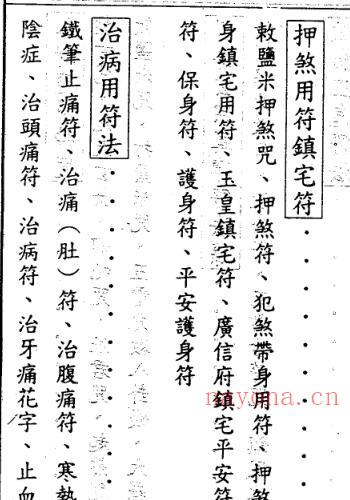 押煞用符鎮宅符
敕鹽米押煞咒、押煞符、犯煞帶身用符、押煞
身鎮宅用符、玉皇鎮宅符、廣信府鎮宅平安符
符、保身符、護身符、平安護身符
治病用符法
鐵筆止痛符、治痛（肚）符、治腹痛符、寒熱
陰症、治頭痛符、治病符、治牙痛花字、止血